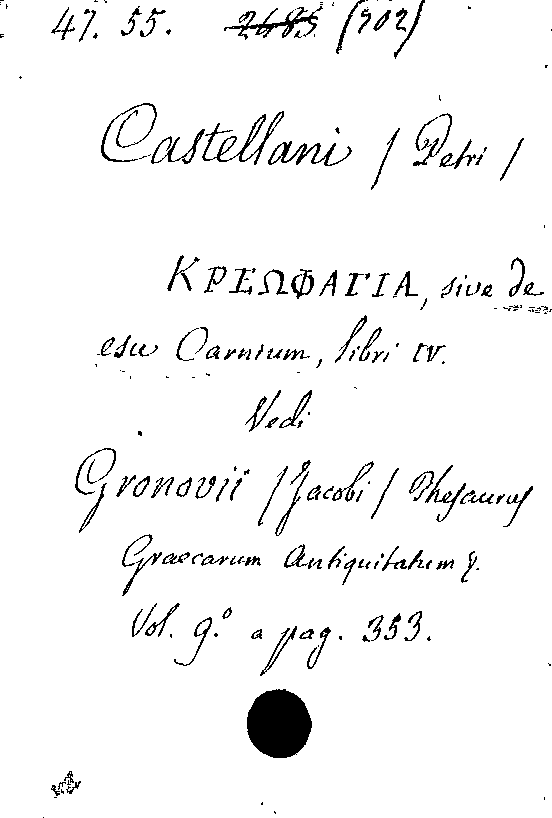 47. 55. 2685 (902)
Castellani / Petri /
ΚΡΕΩΦΑΓΙΑ, sive de
esu Carnium, libri IV.
Vedi
Gronovii / Jacobi / Thesaurus
Graecarum Antiquitatum &.
Vol. 9.º a pag. 353.